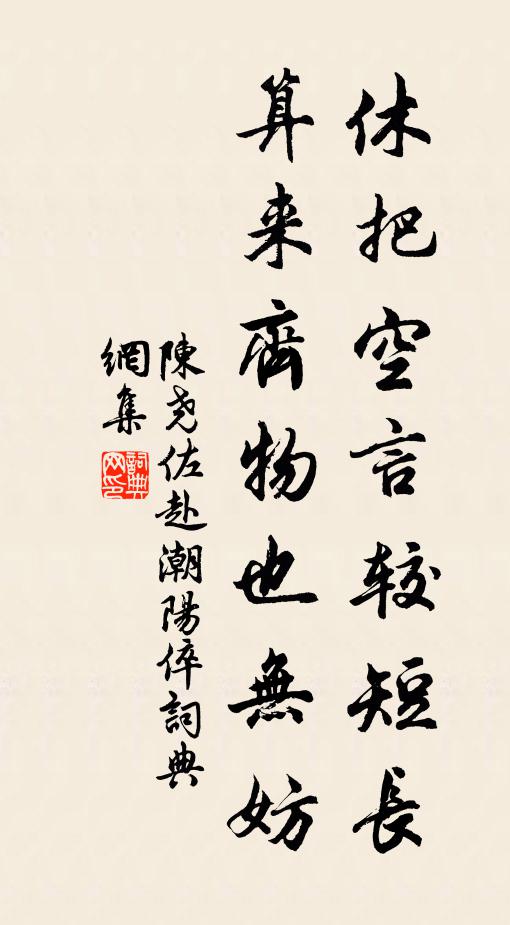 休把空言较短長
算来齊物也無妨
陳尧佐赴潮陽倅詞典
網集
詞典网印